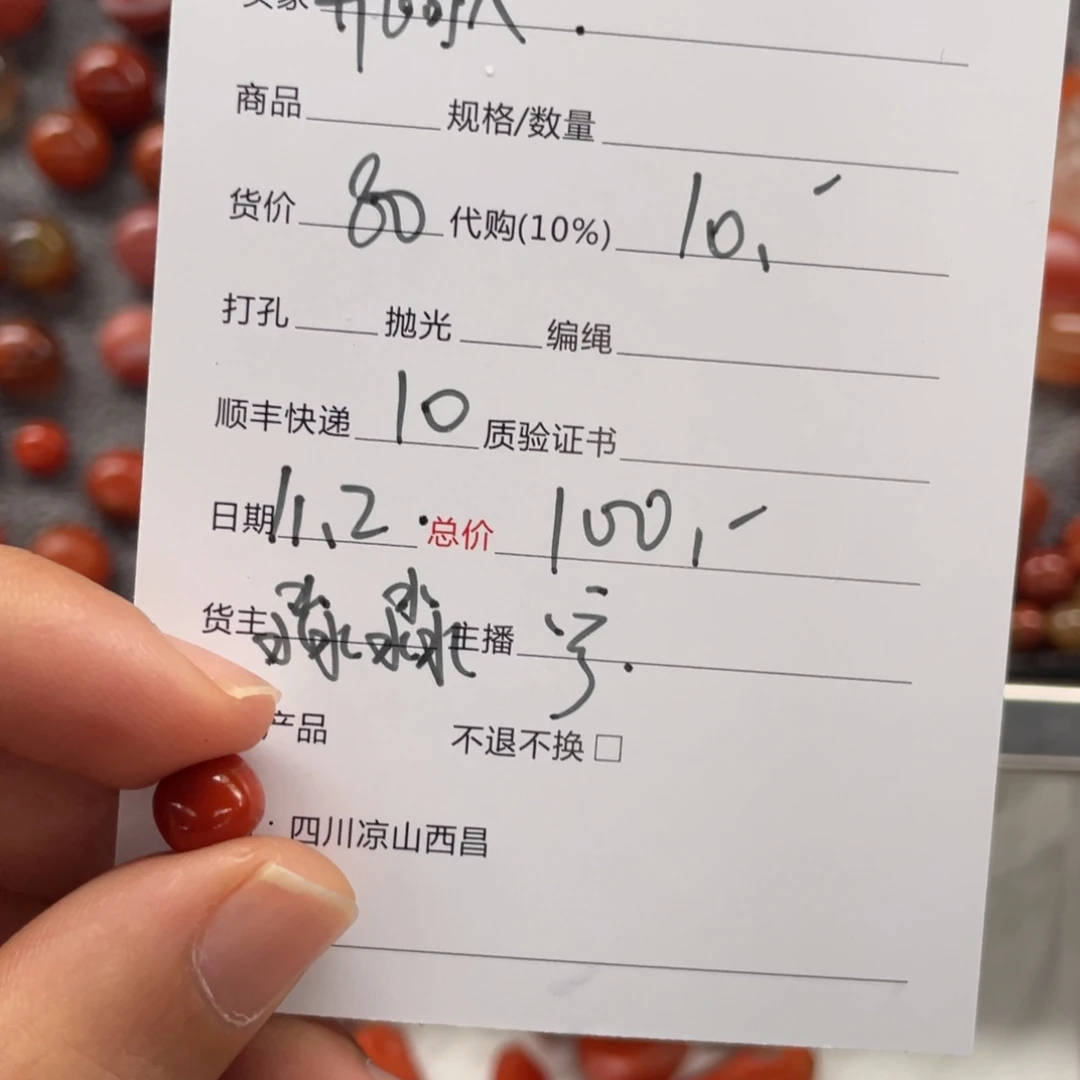 买家
商品 规格/数量
货价 80 代购(10%) 10,
打孔 抛光 编绳
顺丰快递 10 质验证书
日期 11,2 总价 100,
货主 淼淼 主播 宇
产品 不退不换 □
四川凉山西昌